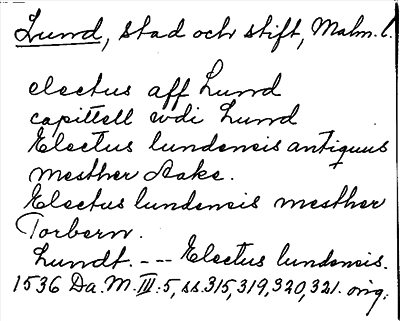 Lund, stad och stift, Malm. l.
electus aff Lund
capittell wdi Lund
Electus lundensis antiquus
mesther Aake.
Electus lundensis mesther
Torbern.
Lundt. --- Electus lundensis.
1536 Da. M. III: 5, ss. 315, 319, 320, 321. orig.